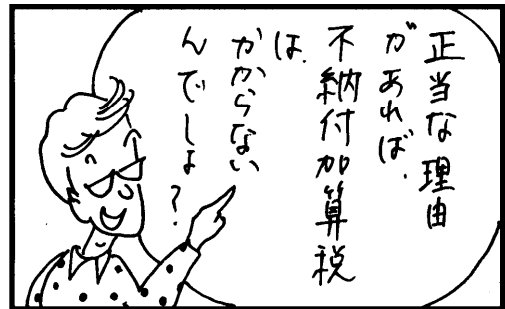 正当な理由
があれば、
不納付加算税
は、
かからない
んでしょ?